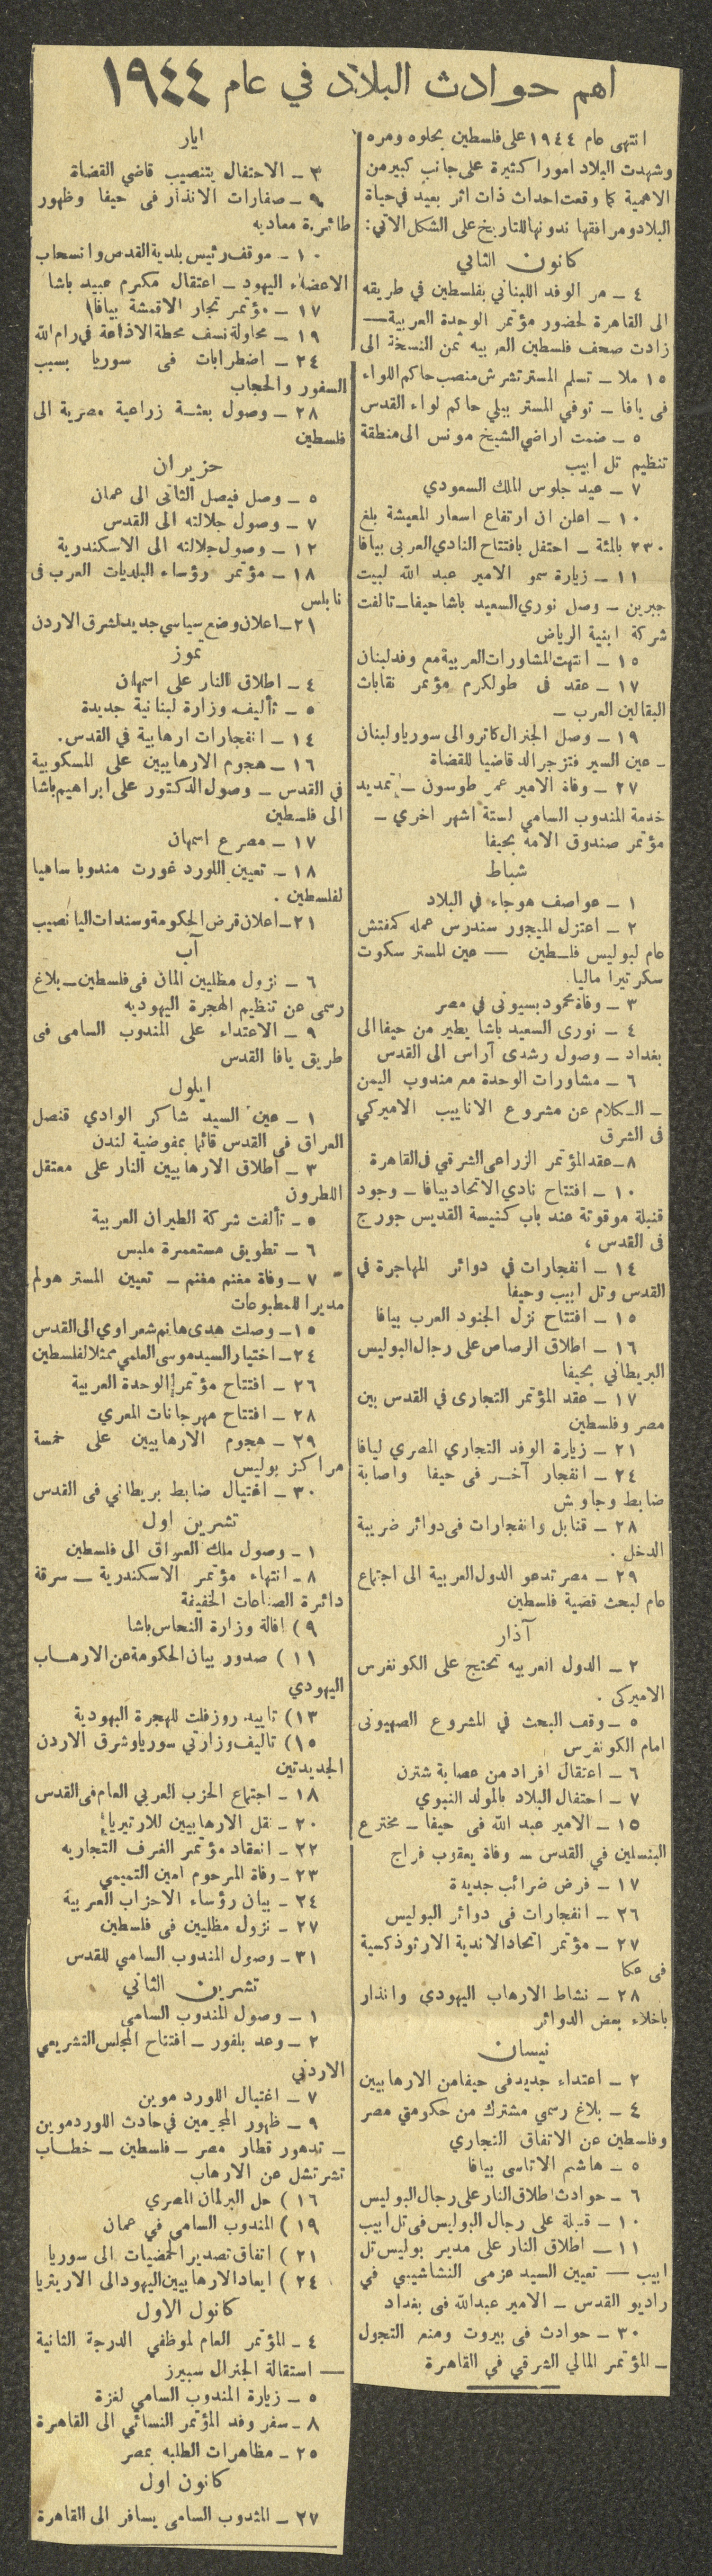 اهم حوادث البلاد في عام ١٩٤٤
انتهى عام ١٩٤٤ على فلسطين بحلوه ومره
وشهدت البلاد امورا كثيرة على جانب كبير من
الاهمية كما وقعت احداث ذات اثر بعيد في حياة
البلاد ومرافقها ندونها للتاريخ على الشكل الآتي:
كانون الثاني
٤ ــ مر الوفد اللبناني بفلسطين في طريقه
الى القاهرة لحضور مؤتمر الوحدة العربية ــ
زادت صحف فلسطين العربيه ثمن النسخة الى
١٥ ملا ــ تسلم المستر تشرش منصب حاكم اللواء
فى يافا ــ توفي المستر بيلي حاكم لواء القدس
٥ ــ ضمت اراضي الشيخ مونس الى منطقة
تنظيم تل ابيب
٧ ــ عيد جلوس الملك السعودي
١٠ ــ اعلن ان ارتفاع اسعار المعيشة بلغ
٢٣٠ بالمئة ــ احتفل بافتتاح النادي العربى بيافا
١١ ــ زيارة سمو الامير عبد الله لبيت
جبرين ــ وصل نوري السعيد باشا حيفا ــ تالفت
شركة ابنية الرياض
١٥ ــ انتهت المشاورات العربية مع وفد لبنان
١٧ ــ عقد فى طولكرم مؤتمر نقابات
البقالين العرب ــ
١٩ ــ وصل الجنرال كاترو الى سوريا ولبنان
ــ عين السير فتزجرالد قاضيا للقضاة
٢٧ ــ وفاة الامير عمر طوسون ــ تمديد
خدمة المندوب السامي لستة اشهر اخري ــ
مؤتمر صندوق الامة بحيفا
شباط
١ ــ عواصف هوجاء في البلاد
٢ ــ اعتزل الميجور سندرس عمله كمفتش
عام لبوليس فلسطين ــ عين المستر سكوت
سكرتيرا ماليا.
٣ ــ وفاة محمود بسيونى في مصر
٤ ــ نورى السعيد باشا يطير من حيفا الى
بغداد ــ وصول رشدى آراس الى القدس
٦ ــ مشاورات الوحدة مع مندوب اليمن
ــ الكلام عن مشروع الانابيب الاميركي
فى الشرق
٨ ــ عقد المؤتمر الزراعى الشرقي فى القاهرة
١٠ ــ افتتاح نادي الاتحاد بيافا ــ وجود
قنبلة موقوتة عند باب كنيسة القديس جورج
فى القدس ،
١٤ ــ انفجارات في دوائر المهاجرة في
القدس وتل ابيب وحيفا
١٥ ــ افتتاح نزل الجنود العرب بيافا
١٦ ــ اطلاق الرصاص على رجال البوليس
البريطاني بحيفا
١٧ ــ عقد المؤتمر التجارى في القدس بين
مصر وفلسطين
٢١ ــ زيارة الوفد التجاري المصري ليافا
٢٤ ــ انفجار آخر فى حيفا واصابة
ضابط وجاوش
٢٨ ــ قنابل وانفجارات فى دوائر ضريبة
الدخل .
٢٩ ــ مصر تدعو الدول العربية الى اجتماع
عام لبحث قضية فلسطين
آذار
٢ ــ الدول العربيه تحتج على الكونغرس
الاميركى .
٥ ــ وقف البحث في المشروع الصهيونى
امام الكونغرس
٦ ــ اعتقال افراد من عصابة شترن
٧ ــ احتفال البلاد بالمولد النبوي
١٥ ــ الامير عبد الله فى حيفا ــ مخترع
البنسلين في القدس ــ وفاة يعقوب فراج
١٧ ــ فرض ضرائب جديدة
٢٦ ــ انفجارات فى دوائر البوليس
٢٧ ــ مؤتمر اتحاد الاندية الارثوذكسية
فى عكا
٢٨ ــ نشاط الارهاب اليهودي وانذار
باخلاء بعض الدوائر
نيسان
٢ ــ اعتداء جديد فى حيفا من الارهابيين
٤ ــ بلاغ رسمي مشترك من حكومتي مصر
وفلسطين عن الاتفاق التجاري
٥ ــ هاشم الاتاسى بيافا
٦ ــ حوادث اطلاق النار على رجال البوليس
١٠ ــ قنبلة على رجال البوليس فى تل ابيب
١١ ــ اطلاق النار على مدير بوليس تل
ابيب ــ تعيين السيد عزمى النشاشيبي في
راديو القدس ــ الامير عبدالله فى بغداد
٣٠ ــ حوادث فى بيروت ومنع التجول
ــ المؤتمر المالي الشرقي في القاهرة
ايار
٣ ــ الاحتفال بتنصيب قاضي القضاة
٩ ــ صفارات الانذار فى حيفا وظهور
طائرة معاديه
١٠ ــ موقف رئيس بلدية القدس وانسحاب
الاعضاء اليهود ــ اعتقال مكرم عبيد باشا
١٧ ــ مؤتمر تجار الاقمشة بيافا
١٩ ــ محاولة نسف محطة الاذاعة في رام الله
٢٤ ــ اضطرابات فى سوريا بسبب
السفور والحجاب
٢٨ ــ وصول بعثة زراعية مصرية الى
فلسطين
حزيران
٥ ــ وصل فيصل الثانى الى عمان
٧ ــ وصول جلالته الى القدس
١٢ ــ وصول جلالته الى الاسكندرية
١٨ ــ مؤتمر رؤساء البلديات العرب فى
نابلس
٢١ ــ اعلان وضع سياسي جديد لشرق الاردن
تموز
٤ ــ اطلاق النار على اسمهان
٥ ــ تأليف وزارة لبنانية جديدة
١٤ ــ انفجارات ارهابية في القدس.
١٦ ــ هجوم الارهابيين على المسكوبية
في القدس ــ وصول الدكتور على ابراهيم باشا
الى فلسطين
١٧ ــ مصرع اسمهان
١٨ ــ تعيين اللورد غورت مندوبا ساميا
لفلسطين .
٢١ ــ اعلان قرض الحكومة وسندات اليانصيب
آب
٦ ــ نزول مظليين المان فى فلسطين ــ بلاغ
رسمى عن تنظيم الهجرة اليهوديه
٩ ــ الاعتداء على المندوب السامى فى
طريق يافا القدس
ايلول
١ ــ عين السيد شاكر الوادي قنصل
العراق في القدس قائما بمفوضية لندن
٣ ــ اطلاق الارهابيين النار على معتقل
اللطرون
٥ ــ تألفت شركة الطيران العربية
٦ ــ تطويق مستعمرة ملبس
٧ ــ وفاة مغنم مغنم ــ تعيين المستر هولم
مديرا للمطبوعات
١٥ ــ وصلت هدى هانم شعراوي الى القدس
٢٤ ــ اختيار السيد موسى العلمي ممثلا لفلسطين
٢٦ ــ افتتاح مؤتمر الوحدة العربية
٢٨ ــ افتتاح مهرجانات المعري
٢٩ ــ هجوم الارهابيين على خمسة
مراكز بوليس
٣٠ ــ اغتيال ضابط بريطاني فى القدس
تشرين اول
١ ــ وصول ملك العراق الى فلسطين
٨ ــ انتهاء مؤتمر الاسكندرية ــ سرقة
دائرة الصناعات الخفيفة
٩ ) اقالة وزارة النحاس باشا
١١ ) صدور بيان الحكومة عن الارهاب
اليهودي
١٣) تاييد روزفلت للهجرة اليهودية
١٥) تاليف وزارتي سوريا وشرق الاردن
الجديدتين
١٨ ــ اجتماع الحزب العربي العام فى القدس
٢٠ ــ نقل الارهابيين للارتيريا
٢٢ ــ انعقاد مؤتمر الغرف التجاريه
٢٣ ــ وفاة المرحوم امين التميمي
٢٤ ــ بيان رؤساء الاحزاب العربية
٢٧ ــ نزول مظليين فى فلسطين
٣١ ــ وصول المندوب السامي للقدس
تشرين الثاني
١ ــ وصول المندوب السامى
٢ ــ وعد بلفور ــ افتتاح المجلس التشريعي
الاردني
٧ ــ اغتيال اللورد موين
٩ ــ ظهور المجرمين في حادث اللورد موين
ــ تدهور قطار مصر ــ فلسطين ــ خطاب
تشرتشل عن الارهاب
١٦ ) حل البرلمان المصري
١٩ ) المندوب السامى في عمان
٢١ ) اتفاق تصدير الحمضيات الى سوريا
٢٤ ) ابعاد الارهابيين اليهود الى الاريتريا
كانول الاول
٤ ــ المؤتمر العام لموظفي الدرجة الثانية
ــ استقالة الجنرال سبيرز
٥ ــ زيارة المندوب السامي لغزة
٨ ــ سفر وفد المؤتمر النسائي الى القاهرة
٢٥ ــ مظاهرات الطلبه بمصر
كانون اول
٢٧ ــ المندوب السامى يسافر الى القاهرة